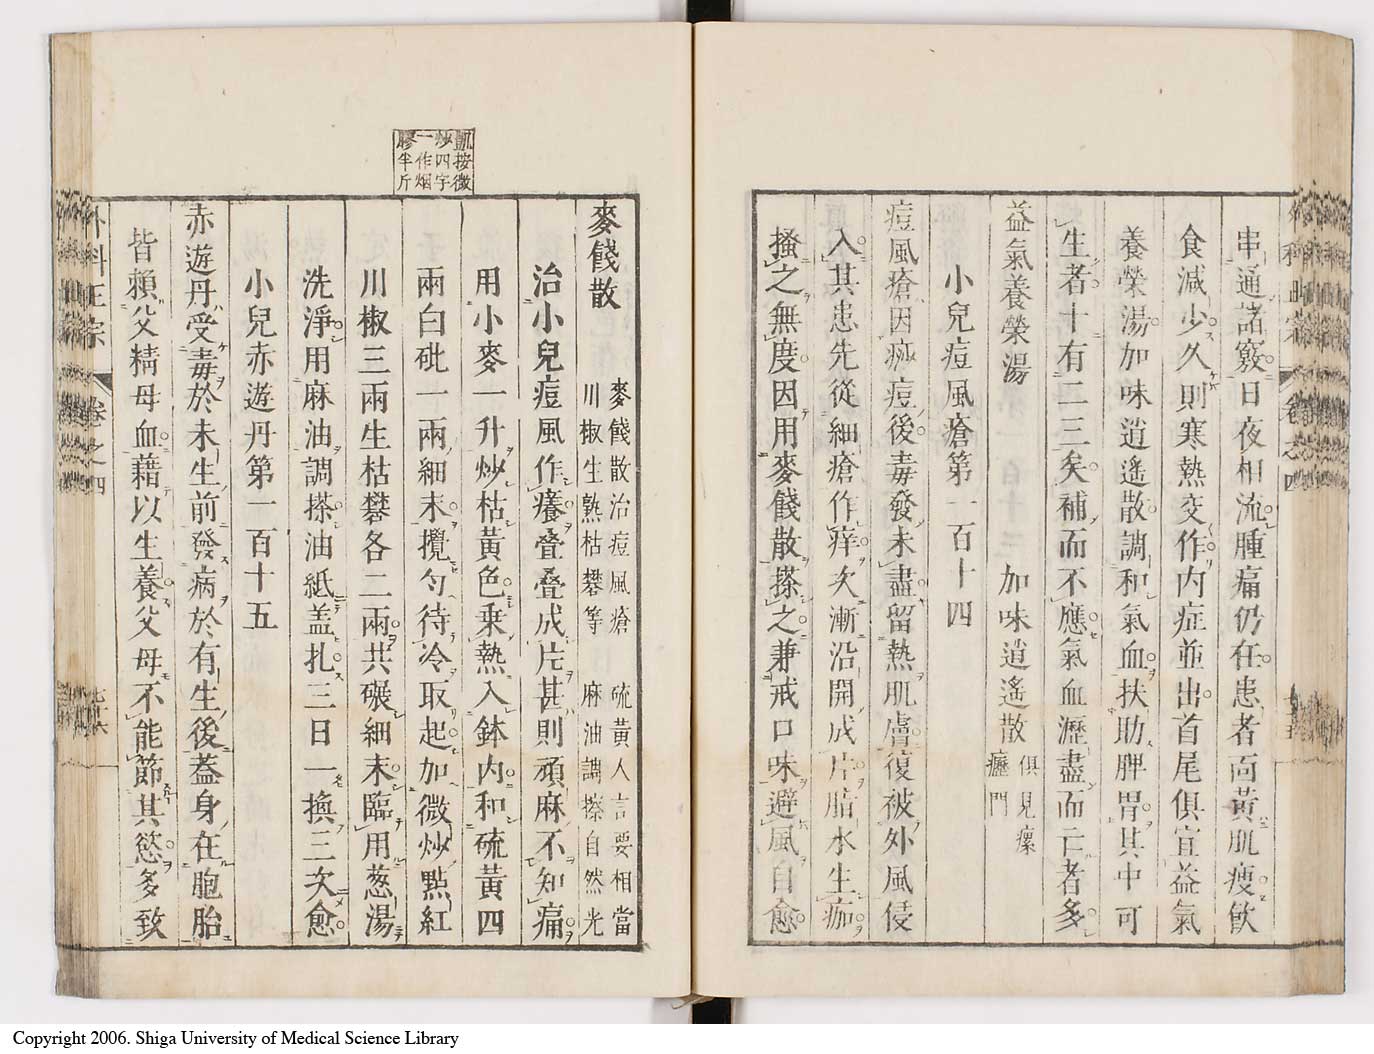 串通諸竅日夜相流腫痛仍在患者面黃肌瘦飲
食減少久則寒熱交作內症並出首尾俱宜益氣
養榮湯加味逍遙散調和氣血扶助脾胃其中可
生者十有二三矣補而不應氣血瀝盡而亡者多
益氣養榮湯 加味逍遙散 俱見瘰癧門
小兒痘風瘡第一百十四
痘風瘡因痧痘後毒發未盡留熱肌膚復被外風侵
入其患先從細瘡作痒次漸沿開成片脂水生痂
搔之無度因用麥餞散搽之兼戒口味避風自愈
麥餞散 麥餞散治痘風瘡 硫黃人言要相當
川椒生熟枯礬等 麻油調擦自然光
治小兒痘風作癢叠叠成片甚則頑麻不知痛
用小麥一升炒枯黃色乘熱入鉢內和硫黃四
兩白砒一兩細末攪勻待冷取起加微炒點紅
川椒三兩生枯礬各二兩共碾細末臨用葱湯
洗淨用麻油調搽油紙盖扎三日一換三次愈
小兒赤遊丹第一百十五
赤遊丹受毒於未生前發病於有生後葢身在胞胎
皆賴父精母血藉以生養父母不能節其慾多致
凱按微
炒四字
一作烟
膠半斤
外科正宗 卷之四 七十六
卷之四
Copyright 2006. Shiga University of Medical Science Library